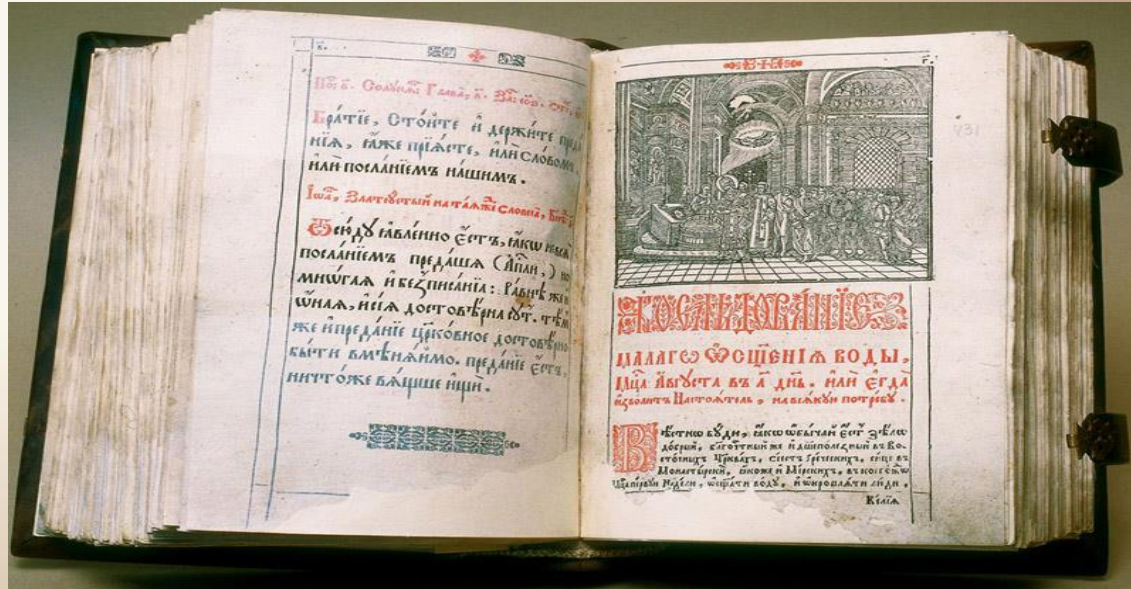 в҃.
Солꙋнѧ́н Глава̀, в҃. За
Бра́тїе, Сто́йте и҆ держи́те преда
нїѧ, ꙗ҆́же прїѧ́сте, и҆лѝ сло́вомъ
и҆лѝ посла́нїемъ на́шимъ.
І҆ѡа́, Златоꙋ́стый на та́ѧжⷣе словеса̀, Бесѣ́
Ѿсю́дꙋ ꙗ҆вле́нно є҆́стъ, ꙗ҆́кѡ не всѧ̀
посла́нїемъ преда́ша (А҆пⷭ҇ли,) но
мнѡ́гаѧ и҆ без̾ писа́нїѧ: Ра́внѣ же и҆
ѡ҆́наѧ, и҆ сїѧ̀ достовѣ̑рна сꙋ́т. тѣ́м
же и҆ преда́нїе цр҃ко́вное достовѣ́рно
бы́ти вмѣнѧ́имо. преда́нїе є҆́стъ,
ничто́же вѧ́щше и҆щѝ.
г҃.
431
ПОСЛѢДОВА́НЇЕ
МА́ЛАГѠ Ѡ҆СЩЕ́НЇѦ ВОДЫ̀,
Мцⷭ҇а А҆́вгꙋста въ а҃ дн҃ь. и҆лѝ є҆гда̀
и҆зво́литъ Настоѧ́тель, на всѧ́кꙋю потре́бꙋ.
Вѣ́стно бꙋ́ди, ꙗ҆́кѡ ѡ҆бы́чай є҆́ст ѕѣлѡ̀
до́брый, бл҃гоⷣтный же и҆ дш҃еполе́зный въ Во
сто́чныхъ Цр҃квахъ, сїе́стъ Гре́ческихъ, є҆́ще въ
Монасты́рски, ꙗ҆́коже и҆ Мі́рскихъ, въ коегѡ́ждѡ
Мцⷭ҇а пе́рвꙋю Недѣ́лю, ѡ҆сщ҃а́ти во́дꙋ, и҆ ѡ҆кроплѧ́ти лю́ди,
Ке́лїѧ